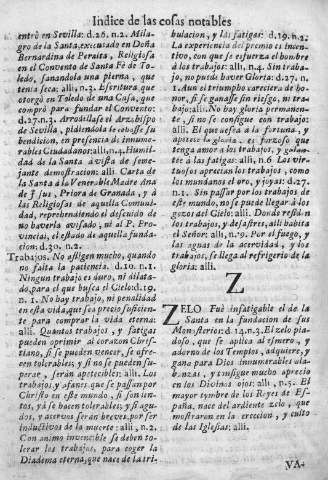 Indice de las cosas notables
entrò en Sevilla: d.26. n.2. Mila-
gro de la Santa, executado en Doña
Bernardina de Peralta, Religiosa
en el Convento de Santa Fè de To-
ledo, sanandola una pierna, que
tenia seca: alli, n.3. Escritura que
otorgò en Toledo de una Casa, que
comprò para fundar el Convento:
d.27. n.3. Arrodillase el Arzobispo
de Sevilla, pidiendola le echasse su
bendicion, en presencia de innume-
rables Ciudadanos: alli, n.4. Humil-
dad de la Santa à vista de seme-
jante demostracion: alli. Carta de
la Santa à la Venerable Madre Ana
de Jesus, Priora de Granada, y à
las Religiosas de aquella Comuni-
dad, reprehendiendo el descuido de
no haverla avisado, ni al P. Pro-
vincial, el estado de aquella funda-
cion: d.30. n.2.
Trabajos. No afligen mucho, quando
no falta la paciencia. d.10. n.1.
Ningun trabajo es duro, ni dilata-
do, para el que busca el Cielo: d.19.
n.1. No hay trabajo, ni penalidad
en esta vida, que sea precio suficien-
te para comprar la vida eterna:
alli. Quantos trabajos, y fatigas
pueden oprimir al corazon Chris-
tiano, si se pueden vencer, se ofre-
cen tolerables; y si no se pueden su-
perar, seràn apetecibles: alli. Los
trabajos, y afanes que se passan por
Christo en este mundo, si son un-
tos, yà se hacen tolerables; y si agu-
dos, y acervos seràn breves, por ser
inductivos de la muerte: alli, n.2.
Con animo invencible se deben to-
lerar los trabajos, para coger la
Diadema eterna, que nace de la tri-
bulacion, y las fatigas: d.19. n.2.
La experiencia del premio es incen-
tivo, con que se esfuerza el hombre
à los trabajos: alli, n.4. Sin traba-
jo, no puede haver Gloria: d.27. n.
1. Aun el triumpho carece de ho-
nor, si se ganasse sin riesgo, ni tra-
bajo: alli. No hay gloria permanen-
te, si no se consigue con trabajo:
alli. El que desea à la fortuna, y
apetece la gloria, es forzoso que
tenga amor à los trabajos, y galan-
tèe à las fatigas: alli, n.6. Los vir-
tuosos aprecian los trabajos, como
los mundanos el oro, y joyas: d.27.
n.1. Sin passar por los trabajos de
este mundo, no se puede llegar à los
gozos del Cielo: alli. Donde residen
los trabajos, y desastres, alli habita
el Señor: alli, n.9. Por el fuego, y
las aguas de la acervidad, y los
trabajos, se llega al refrigerio de la
gloria: alli.
Z
ZELO. Fuè infatigable el de la
Santa en la fundacion de sus
Monasterios: d.14. n.3. El zelo piado-
so, que se aplica al esmero, y
adorno de los Templos, adquiere, y
gana para Dios innumerables ala-
banzas, y consigue mucho aprecio
en los Divinos ojos: alli, n.5. El
mayor tymbre de los Reyes de Es-
paña, nace del ardiente zelo, que
mostraron en la ereccion, y culto
de las Iglesias: alli.
VA-